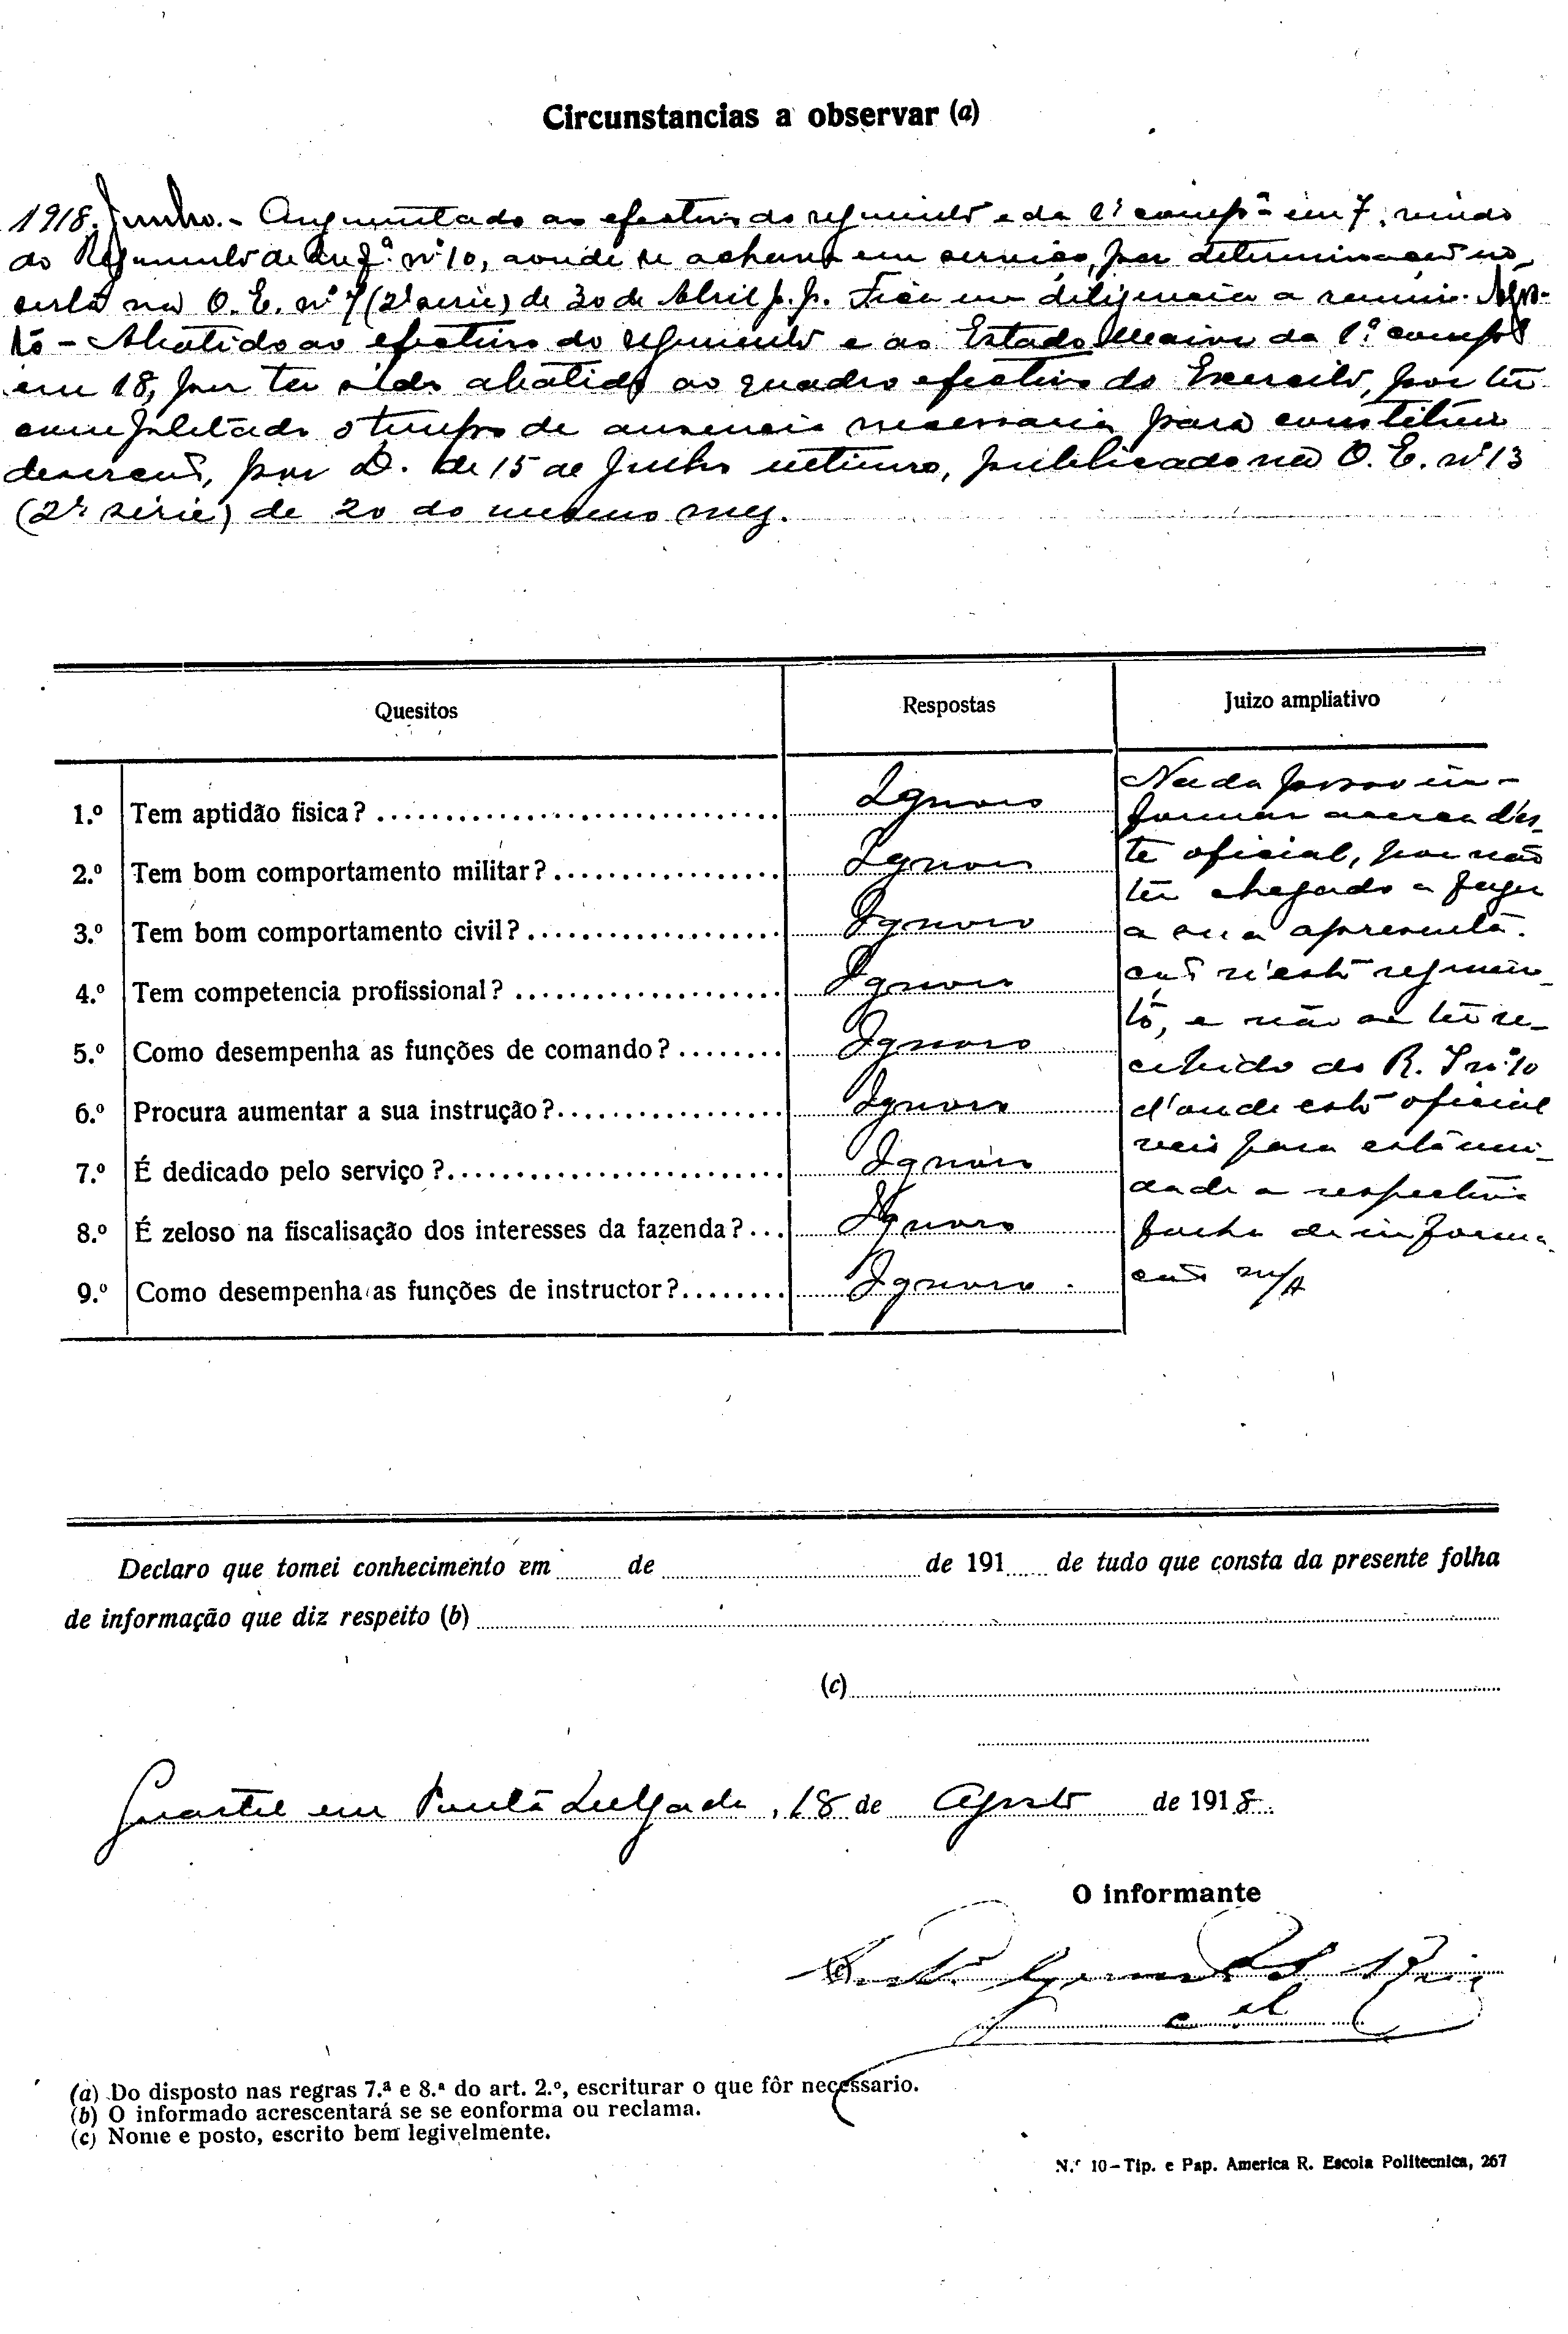 Circunstancias a observar (a)
1918. Junho. - Aumentado ao efectivo do regimento e da 1ª comp.ª em 7, vindo
do Regimento de Inf.ª nº 10, aonde se achava em serviço, por determinação in-
serta na O. E. nº 7 (2ª serie) de 20 de Abril p. p. Fica em diligencia a reunir. Agos-
to - Abatido ao efectivo do regimento e ao Estado Maior da 1ª comp.ª
em 18, por ter sido abatido ao quadro efectivo do Exercito, por ter
completado o tempo de ausencia necessaria para constituir
deserção, por D. de 15 de Julho ultimo, publicado na O. E. nº 13
(2ª série) de 20 do mesmo mez.
Quesitos Respostas Juizo ampliativo
1.º Tem aptidão fisica? Ignoro
2.º Tem bom comportamento militar? Ignoro
3.º Tem bom comportamento civil? Ignoro
4.º Tem competencia profissional? Ignoro
5.º Como desempenha as funções de comando? Ignoro
6.º Procura aumentar a sua instrução? Ignoro
7.º É dedicado pelo serviço? Ignoro
8.º É zeloso na fiscalisação dos interesses da fazenda? Ignoro
9.º Como desempenha as funções de instructor? Ignoro.
Nada posso in-
formar acerca d'es-
te oficial, por não
ter chegado a fazer
a sua apresenta-
ção n'este regimen-
to, e não se ter re-
cebido do R. I nº 10
d'onde este oficial
veio para esta uni-
dade a respectiva
folha de informa-
ção m/A
Declaro que tomei conhecimento em de de 191 de tudo que consta da presente folha
de informação que diz respeito (b)
(c)
Quartel em Ponta Delgada, 18 de Agosto de 1918.
O informante
(c)
c.el
(a) Do disposto nas regras 7.ª e 8.ª do art. 2.º, escriturar o que fôr necessario.
(b) O informado acrescentará se se eonforma ou reclama.
(c) Nome e posto, escrito bem legivelmente.
N.º 10 - Tip. e Pap. America R. Escola Politecnica, 267